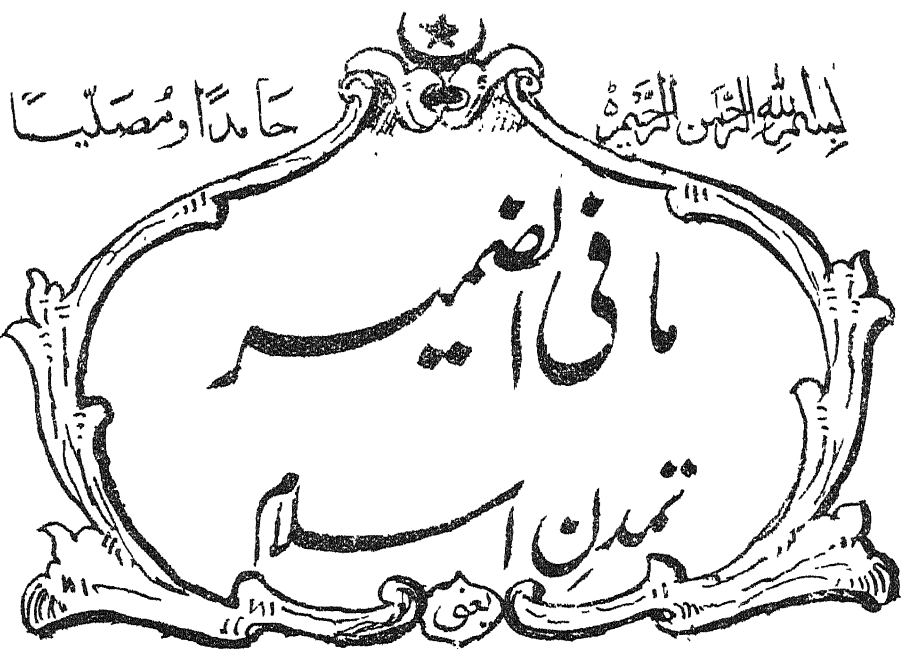 بِسْمِ اللهِ الرَّحْمٰنِ الرَّحِيْمِ
حَامِدًا وَّمُصَلِّيًا
ما فی الضمیر
تمدن اسلام